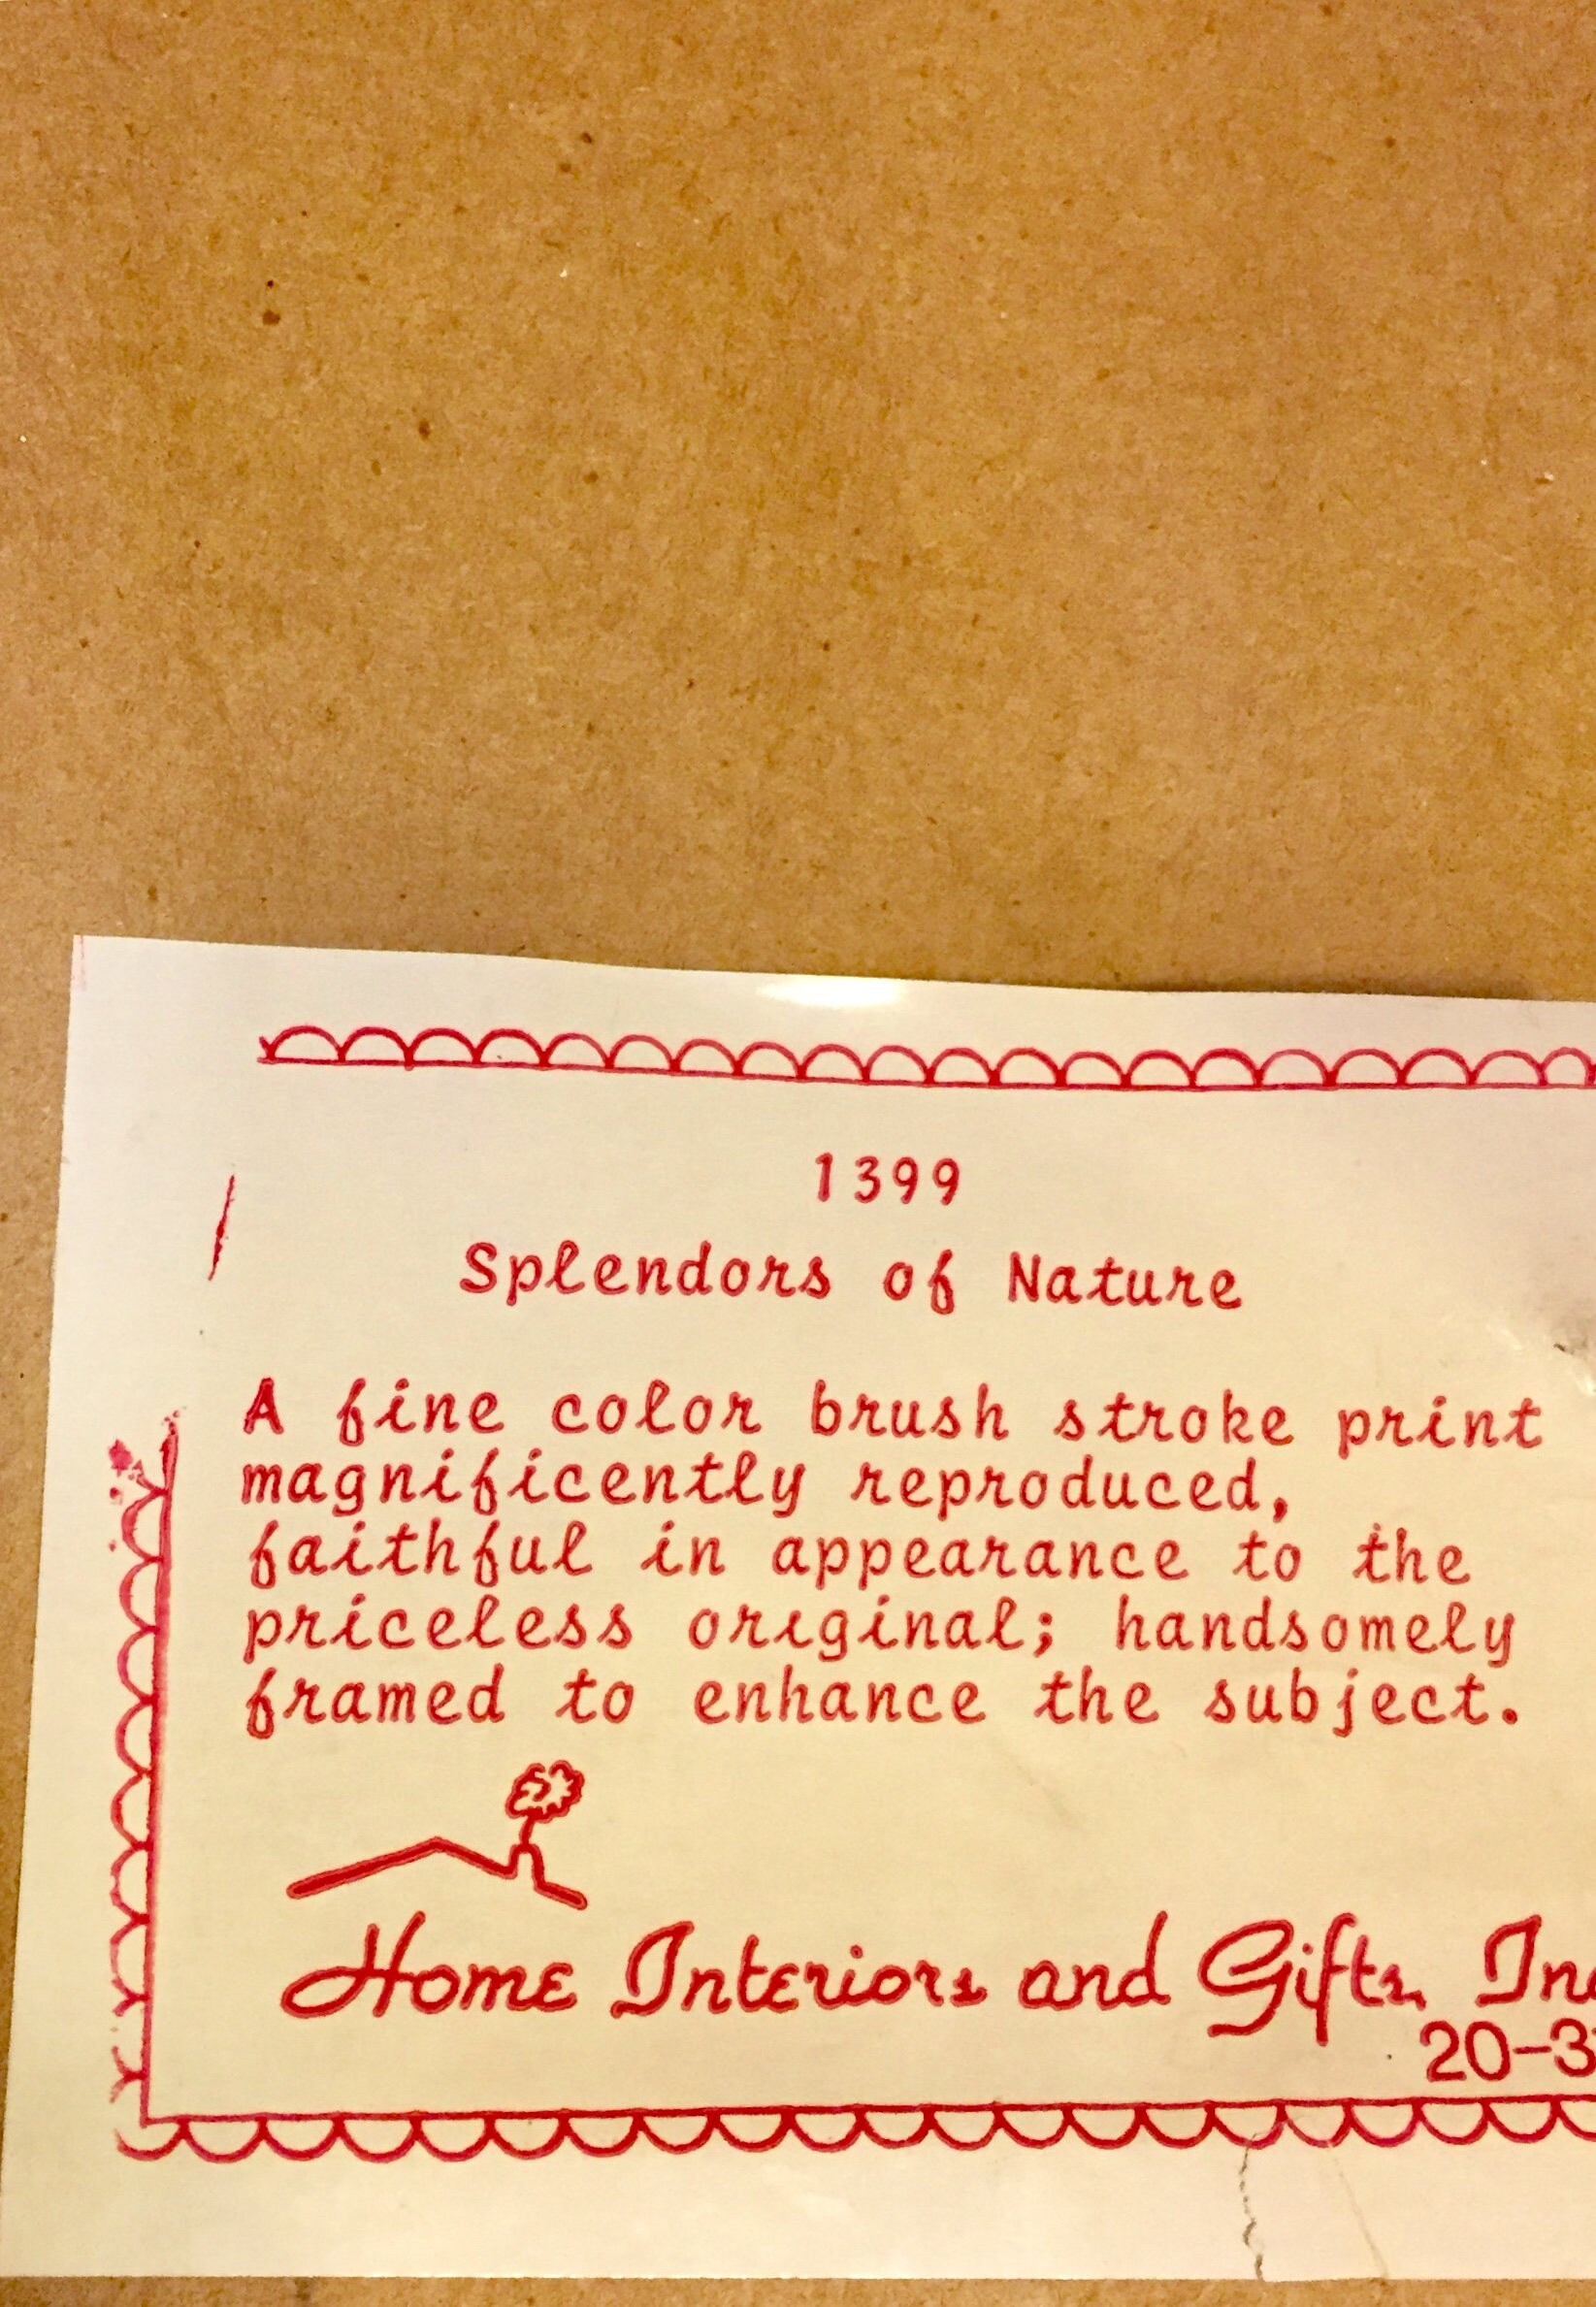 1399
Splendors of Nature
A fine color brush stroke print
magnificently reproduced,
faithful in appearance to the
priceless original; handsomely
framed to enhance the subject.
Home Interiors and Gifts, Inc
20-3